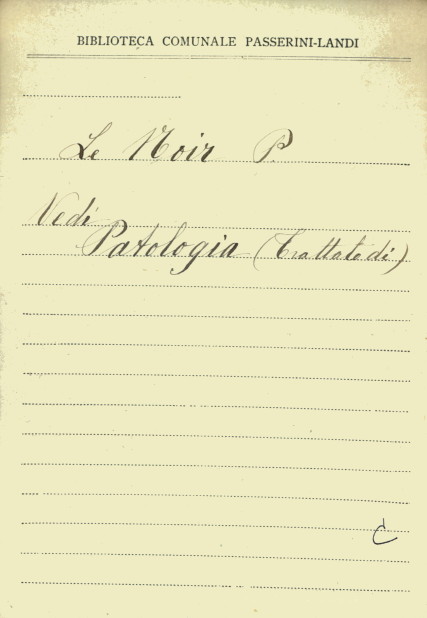 BIBLIOTECA COMUNALE PASSERINI-LANDI
Le Noir P.
Vedi
Patologia (Trattato di)
C